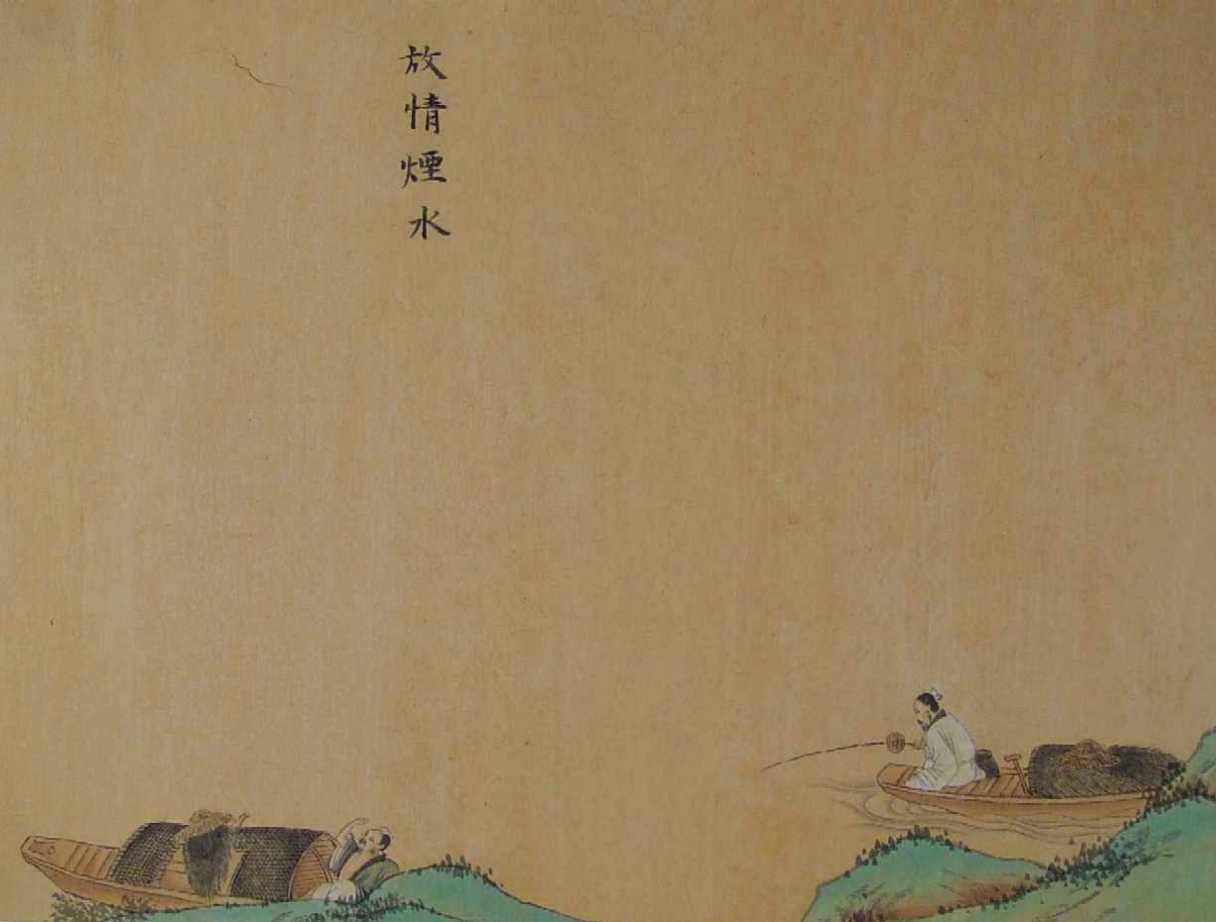 放情煙水